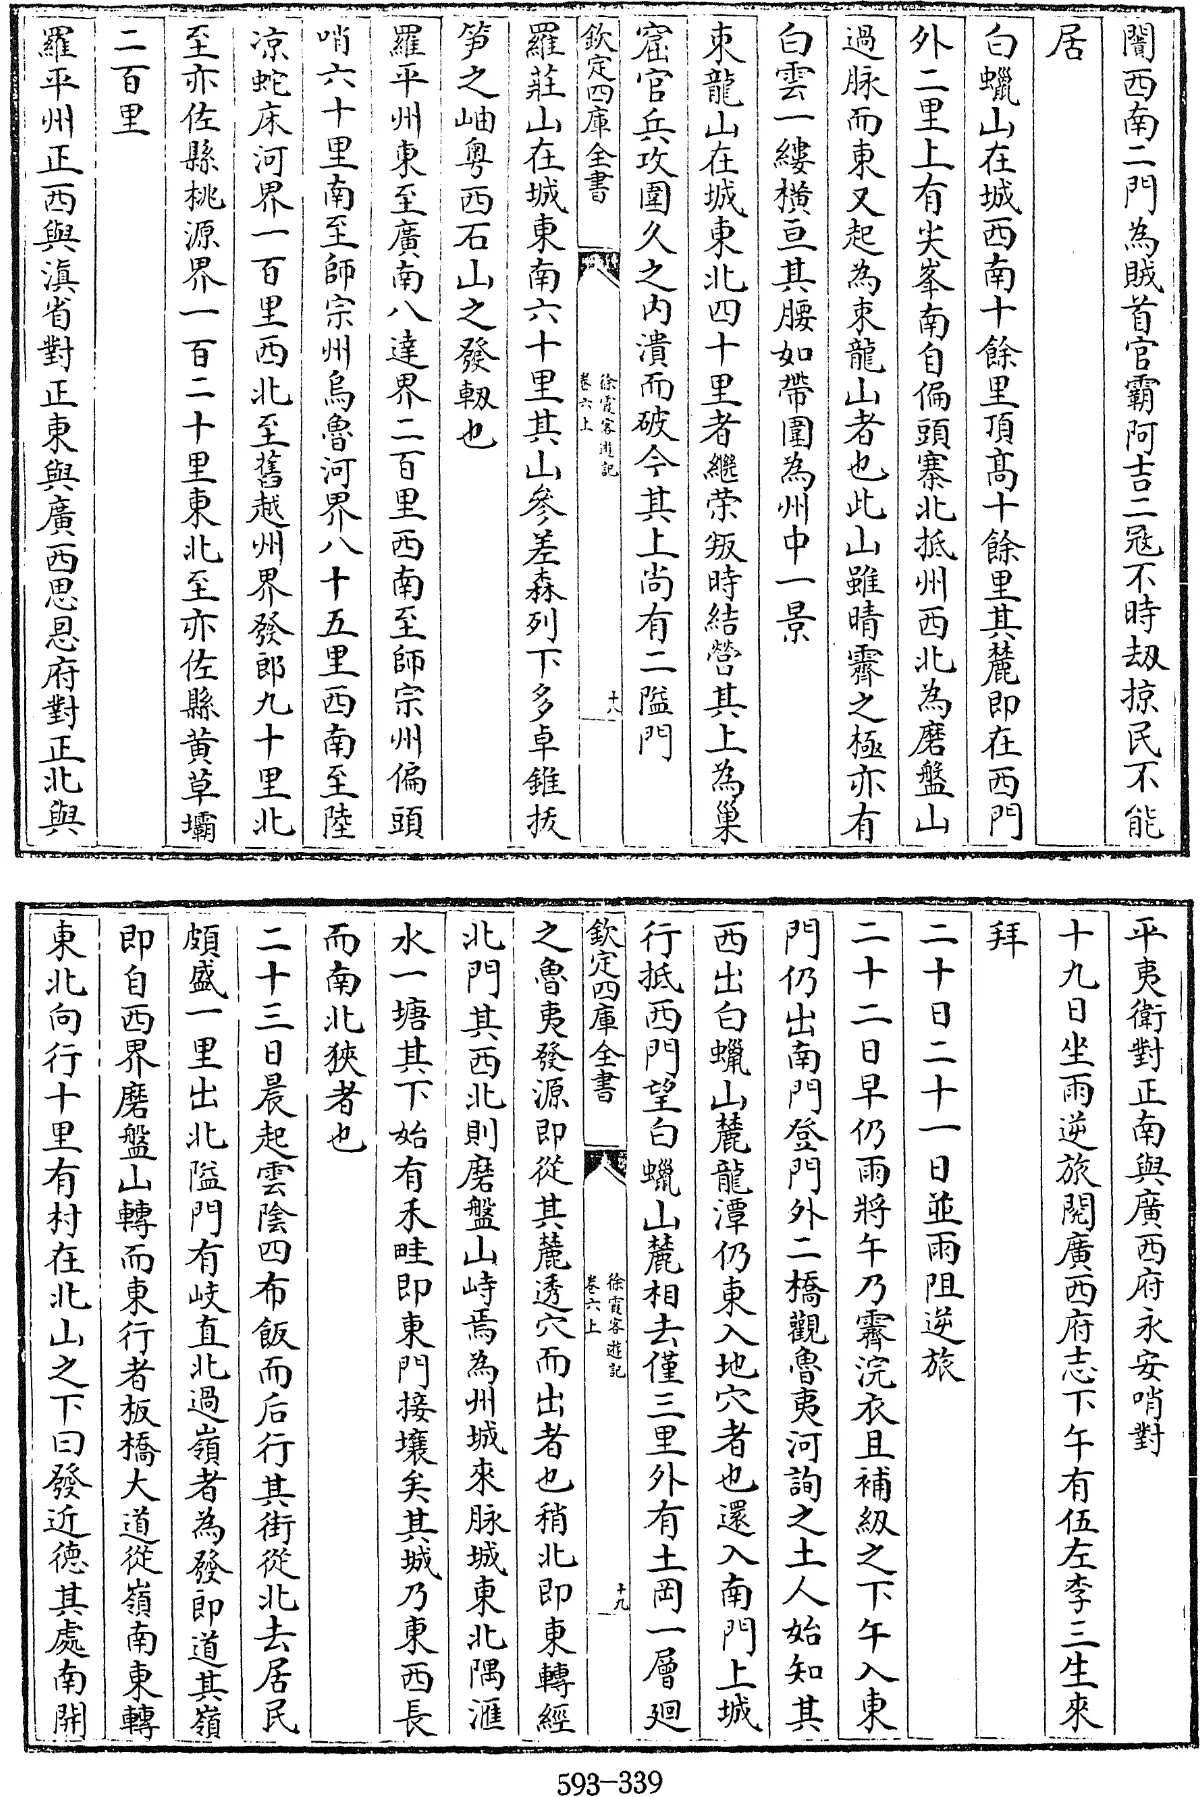 闇西南二門為賊首官霸阿吉二冦不時刼掠民不能
居
白蠟山在城西南十餘里頂髙十餘里其麓即在西門
外二里上有尖峯南自偏頭寨北抵州西北為磨盤山
過脉而東又起為束龍山者也此山雖晴霽之極亦有
白雲一縷横亘其腰如帶圍為州中一景
束龍山在城東北四十里者繼荣叛時結營其上為巢
窟官兵攻圍久之内潰而破今其上尚有二隘門
欽定四庫全書
徐霞客遊記
卷六上
十八
羅莊山在城東南六十里其山參差森列下多卓錐拔
笋之岫粤西石山之發軔也
羅平州東至廣南八達界二百里西南至師宗州偏頭
哨六十里南至師宗州烏魯河界八十五里西南至陸
凉蛇床河界一百里西北至舊越州界發郎九十里北
至亦佐縣桃源界一百二十里東北至亦佐縣黄草壩
二百里
羅平州正西與滇省對正東與廣西思恩府對正北與
平夷衛對正南與廣西府永安哨對
十九日坐雨逆旅閱廣西府志下午有伍左李三生來
拜
二十日二十一日並雨阻逆旅
二十二日早仍雨將午乃霽浣衣且補紉之下午入東
門仍出南門登門外二橋觀魯夷河詢之土人始知其
西出白蠟山麓龍潭仍東入地穴者也還入南門上城
行抵西門望白蠟山麓相去僅三里外有土岡一層廻
欽定四庫全書
徐霞客遊記
卷六上
十九
之魯夷發源即從其麓透穴而出者也稍北即東轉經
北門其西北則磨盤山峙焉為州城來脉城東北隅滙
水一塘其下始有禾畦即東門接壤矣其城乃東西長
而南北狹者也
二十三日晨起雲陰四布飯而后行其街從北去居民
頗盛一里出北隘門有岐直北過嶺者為發即道其嶺
即自西界磨盤山轉而東行者板橋大道從嶺南東轉
東北向行十里有村在北山之下曰發近德其處南開
593-339